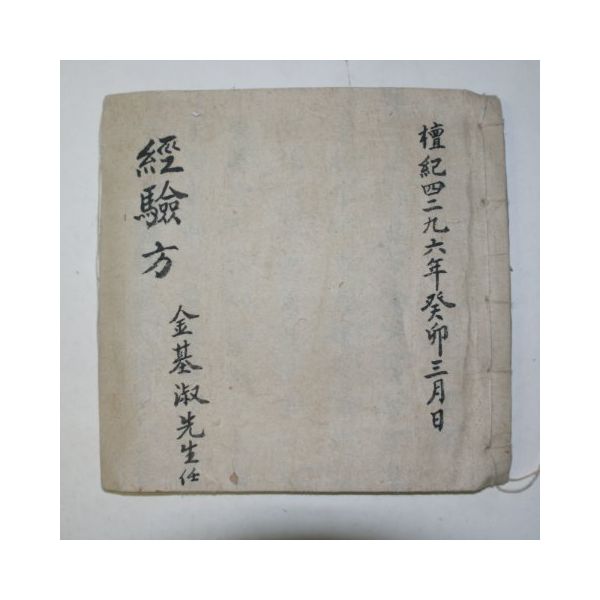 檀紀四二九六年癸卯三月日
經驗方
金基淑先生任